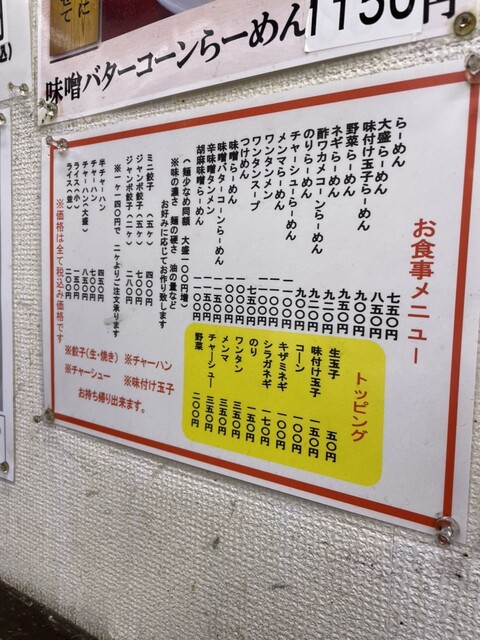 味噌バターコーンらーめん 1150円
お食事メニュー
らーめん 七五〇円
大盛らーめん 八五〇円
味付け玉子らーめん 九〇〇円
野菜らーめん 九五〇円
ネギらーめん
酢ワカメコーンらーめん
のりらーめん
チャーシューらーめん
メンマらーめん
ワンタンメン
ワンタンスープ
つけめん
味噌らーめん
味噌バターコーンらーめん 一一五〇円
辛味噌タンメン
胡麻味噌らーめん
(麺少なめ同額 大盛一〇〇円増)
※味の濃さ 麺の硬さ 油の量など
お好みに応じてお作り致します
ミニ餃子(五ヶ) 四〇〇円
ジャンボ餃子(五ヶ) 七〇〇円
ジャンボ餃子(二ヶ) 二八〇円
※一ヶ一四〇円で 二ヶよりご注文承ります
半チャーハン 四五〇円
チャーハン 七〇〇円
チャーハン(大盛) 八五〇円
ライス(小) 一五〇円
ライス(並) 二〇〇円
※価格は全て税込み価格です
トッピング
生玉子 五〇円
味付け玉子 一五〇円
コーン 一〇〇円
キザミネギ 一〇〇円
シラガネギ 一七〇円
のり 一五〇円
ワンタン 三五〇円
メンマ 三五〇円
チャーシュー 三五〇円
野菜 二〇〇円
※餃子(生・焼き) ※チャーハン
※チャーシュー ※味付け玉子
お持ち帰り出来ます。